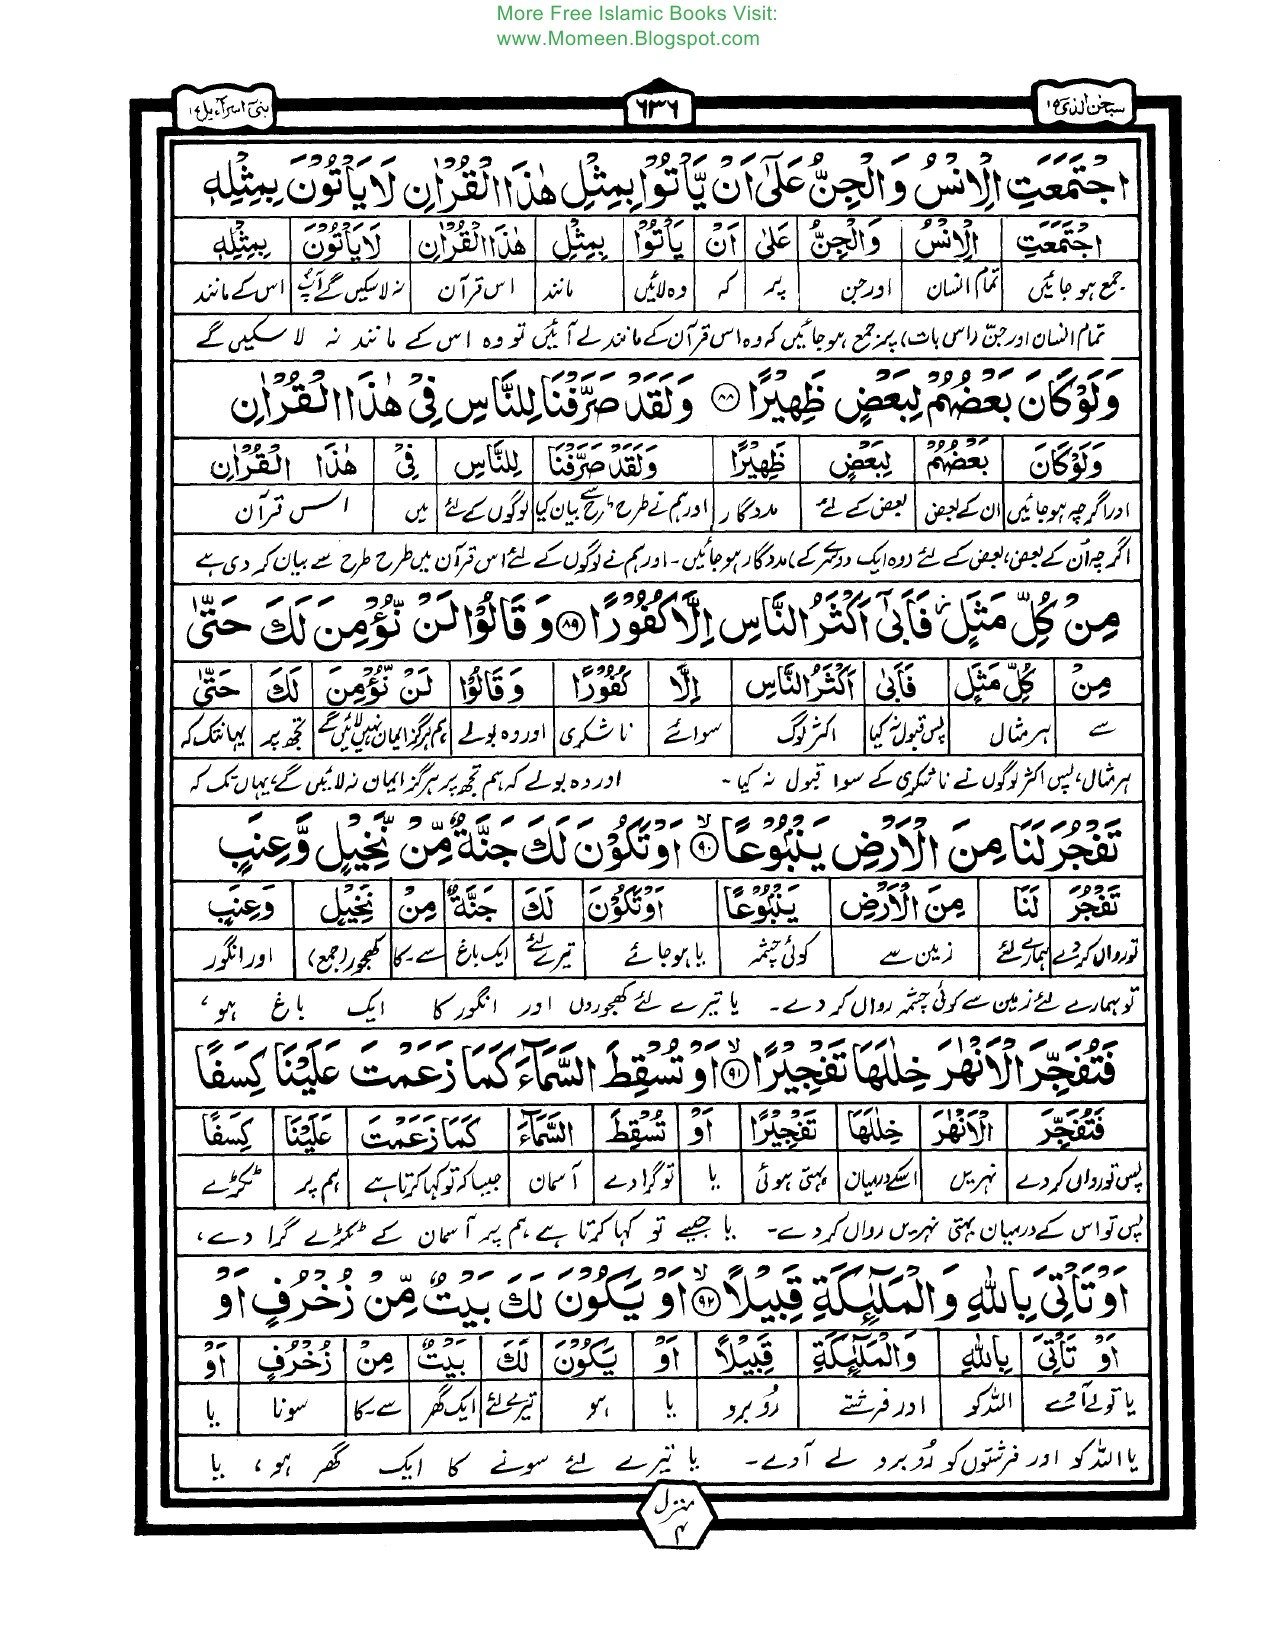 More Free Islamic Books Visit:
www.Momeen.Blogspot.com
سبحٰن الذی ۱۵
۶۳۶
بنیٓ اسرآءیل ۱۷
اجْتَمَعَتِ الْاِنْسُ وَالْجِنُّ عَلٰٓى اَنْ يَّاْتُوْا بِمِثْلِ هٰذَا الْقُرْاٰنِ لَا يَاْتُوْنَ بِمِثْلِهٖ
اجْتَمَعَتِ الْاِنْسُ وَالْجِنُّ عَلٰى اَنْ يَاْتُوْا بِمِثْلِ هٰذَا الْقُرْاٰنِ لَا يَاْتُوْنَ بِمِثْلِهٖ
جمع ہوجائیں تمام انسان اور جن پر کہ وہ لائیں مانند اس قرآن نہ لاسکیں گے اس کے مانند
تمام انسان اور جنّ (اس بات) پر جمع ہوجائیں کہ وہ اس قرآن کے مانند لے آئیں تو وہ اس کے مانند نہ لا سکیں گے
وَلَوْ كَانَ بَعْضُهُمْ لِبَعْضٍ ظَهِيْرًا ۸۸ وَلَقَدْ صَرَّفْنَا لِلنَّاسِ فِيْ هٰذَا الْقُرْاٰنِ
وَلَوْ كَانَ بَعْضُهُمْ لِبَعْضٍ ظَهِيْرًا وَلَقَدْ صَرَّفْنَا لِلنَّاسِ فِيْ هٰذَا الْقُرْاٰنِ
اور اگرچہ ہوجائیں ان کے بعض بعض کے لئے مددگار اور ہم نے طرح طرح سے بیان کیا لوگوں کے لئے میں اس قرآن
اگرچہ اُن کے بعض، بعض کے لئے (وہ ایک دوسرے کے) مددگار ہوجائیں۔ اور ہم نے لوگوں کے لئے اس قرآن میں طرح طرح سے بیان کر دی ہے
مِنْ كُلِّ مَثَلٍ فَاَبٰٓى اَكْثَرُ النَّاسِ اِلَّا كُفُوْرًا ۸۹ وَقَالُوْا لَنْ نُّؤْمِنَ لَكَ حَتّٰى
مِنْ كُلِّ مَثَلٍ فَاَبٰى اَكْثَرُ النَّاسِ اِلَّا كُفُوْرًا وَقَالُوْا لَنْ نُّؤْمِنَ لَكَ حَتّٰى
سے ہر مثال پس قبول نہ کیا اکثر لوگ سوائے ناشکری اور وہ بولے ہم ہرگز ایمان نہیں لائیں گے تجھ پر یہانتک کہ
ہر مثال، پس اکثر لوگوں نے ناشکری کے سوا قبول نہ کیا۔ اور وہ بولے کہ ہم تجھ پر ہرگز ایمان نہ لائیں گے، یہاں تک کہ
تَفْجُرَ لَنَا مِنَ الْاَرْضِ يَنْۢبُوْعًا ۹۰ اَوْ تَكُوْنَ لَكَ جَنَّةٌ مِّنْ نَّخِيْلٍ وَّعِنَبٍ
تَفْجُرَ لَنَا مِنَ الْاَرْضِ يَنْۢبُوْعًا اَوْ تَكُوْنَ لَكَ جَنَّةٌ مِنْ نَّخِيْلٍ وَعِنَبٍ
تو رواں کردے ہمارے لئے زمین سے کوئی چشمہ یا ہوجائے تیرے لئے ایک باغ سے۔کا کھجور (جمع) اور انگور
تو ہمارے لئے زمین سے کوئی چشمہ رواں کر دے۔ یا تیرے لئے کھجوروں اور انگور کا ایک باغ ہو،
فَتُفَجِّرَ الْاَنْهٰرَ خِلٰلَهَا تَفْجِيْرًا ۹۱ اَوْ تُسْقِطَ السَّمَآءَ كَمَا زَعَمْتَ عَلَيْنَا كِسَفًا
فَتُفَجِّرَ الْاَنْهٰرَ خِلٰلَهَا تَفْجِيْرًا اَوْ تُسْقِطَ السَّمَآءَ كَمَا زَعَمْتَ عَلَيْنَا كِسَفًا
پس تو رواں کردے نہریں اسکے درمیان بہتی ہوئی یا تو گرا دے آسمان جیسا کہ تو کہا کرتا ہے ہم پر ٹکڑے
پس تو اس کے درمیان بہتی نہریں رواں کردے۔ یا جیسے تو کہا کرتا ہے ہم پر آسمان کے ٹکڑے گرا دے،
اَوْ تَاْتِيَ بِاللّٰهِ وَالْمَلٰٓئِكَةِ قَبِيْلًا ۹۲ اَوْ يَكُوْنَ لَكَ بَيْتٌ مِّنْ زُخْرُفٍ اَوْ
اَوْ تَاْتِيَ بِاللّٰهِ وَالْمَلٰٓئِكَةِ قَبِيْلًا اَوْ يَكُوْنَ لَكَ بَيْتٌ مِنْ زُخْرُفٍ اَوْ
یا تو لے آئے اللہ کو اور فرشتے رُوبرو یا ہو تیرے لئے ایک گھر سے۔کا سونا یا
یا اللہ کو اور فرشتوں کو رُوبرو لے آوے۔ یا تیرے لئے سونے کا ایک گھر ہو، یا
منزل
۴